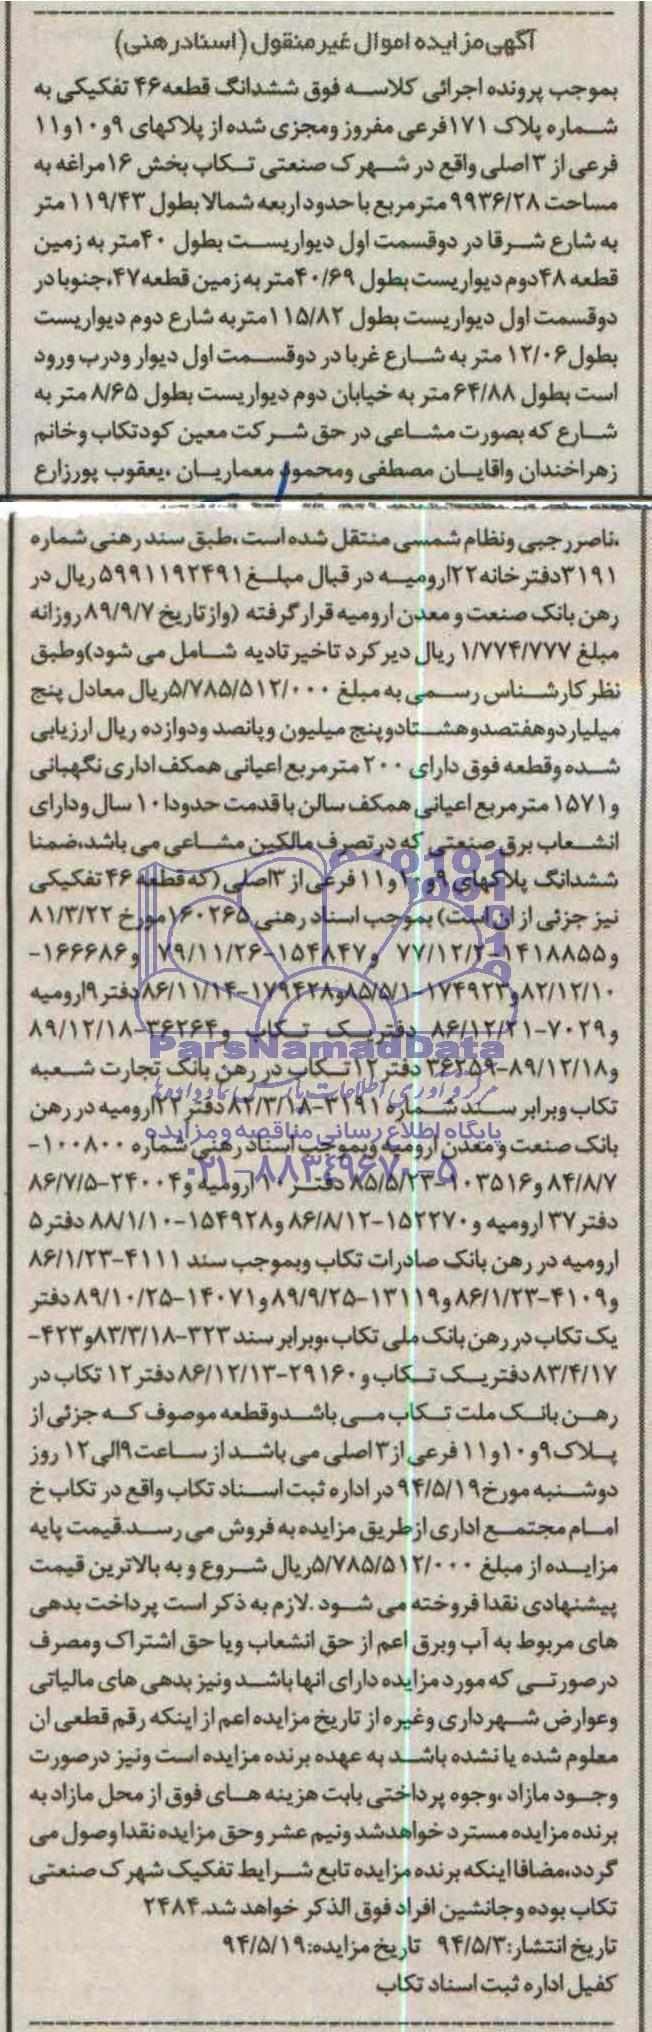 آگهی مزایده اموال غیرمنقول (اسنادرهنی)
بموجب پرونده اجرائی کلاسه فوق ششدانگ قطعه۴۶ تفکیکی به
شماره پلاک ۱۷۱فرعی مفروز ومجزی شده از پلاکهای ۹و۱۰و۱۱
فرعی از ۳اصلی واقع در شهرک صنعتی تکاب بخش ۱۶مراغه به
مساحت ۹۹۳۶/۲۸ مترمربع با حدود اربعه شمالا بطول ۱۱۹/۴۳ متر
به شارع شرقا در دوقسمت اول دیواریست بطول ۴۰متر به زمین
قطعه ۴۸دوم دیواریست بطول ۴۰/۶۹متر به زمین قطعه۴۷،جنوبا در
دوقسمت اول دیواریست بطول ۱۱۵/۸۲متربه شارع دوم دیواریست
بطول۱۲/۰۶ متر به شارع غربا در دوقسمت اول دیوار ودرب ورود
است بطول ۶۴/۸۸ متر به خیابان دوم دیواریست بطول ۸/۶۵ متر به
شارع که بصورت مشاعی در حق شرکت معین کودتکاب وخانم
زهراخندان واقایان مصطفی ومحمود معماریان ،یعقوب پورزارع
،ناصررجبی ونظام شمسی منتقل شده است،طبق سند رهنی شماره
۳۱۹۱دفترخانه۲۲ارومیه در قبال مبلغ۵۹۹۱۱۹۲۴۹۱ ریال در
رهن بانک صنعت و معدن ارومیه قرارگرفته (وازتاریخ ۸۹/۹/۷ روزانه
مبلغ ۱/۷۷۴/۷۷۷ ریال دیرکرد تاخیرتادیه شامل می شود)وطبق
نظرکارشناس رسمی به مبلغ ۵/۷۸۵/۵۱۲/۰۰۰ریال معادل پنج
میلیاردوهفتصدوهشتادوپنج میلیون وپانصد ودوازده ریال ارزیابی
شده وقطعه فوق دارای ۲۰۰ مترمربع اعیانی همکف اداری نگهبانی
و۱۵۷۱ مترمربع اعیانی همکف سالن باقدمت حدودا۱۰ سال ودارای
انشعاب برق صنعتی که درتصرف مالکین مشاعی می باشد،ضمنا
ششدانگ پلاکهای ۹و۱۰و۱۱ فرعی از ۳اصلی (که قطعه ۴۶ تفکیکی
نیز جزئی از ان است) بموجب اسناد رهنی ۱۶۰۲۶۵مورخ ۸۱/۳/۲۲
و۱۴۱۸۸۵۵-۷۷/۱۲/۲ و۱۵۴۸۴۷-۷۹/۱۱/۲۶ و۱۶۶۶۸۶-
۸۲/۱۲/۱۰و۱۷۴۹۲۳-۸۵/۵/۱و۱۷۹۴۲۸-۸۶/۱۱/۱۴دفتر۹ارومیه
و۷۰۲۹-۸۶/۱۲/۲۱ دفتریک تکاب و۳۶۲۶۴-۸۹/۱۲/۱۸
و۸۹/۱۲/۱۸-۳۶۲۵۹ دفتر۱۲تکاب در رهن بانک تجارت شعبه
تکاب وبرابر سند شماره ۳۱۹۱-۸۲/۳/۱۸ دفتر۲۲ارومیه در رهن
بانک صنعت و معدن ارومیه وبموجب اسناد رهنی شماره ۱۰۰۸۰۰-
۸۴/۸/۷ و۱۰۳۵۱۶-۸۵/۵/۲۳ دفتر۱۰ارومیه و۲۴۰۰۴-۸۶/۷/۵
دفتر۳۷ ارومیه و۱۵۲۲۷۰-۸۶/۸/۱۲ و۱۵۴۹۲۸-۸۸/۱/۱۰دفتر۵
ارومیه در رهن بانک صادرات تکاب وبموجب سند ۴۱۱۱-۸۶/۱/۲۳
و۴۱۰۹-۸۶/۱/۲۳ و۱۳۱۱۹-۸۹/۹/۲۵ و۱۴۰۷۱-۸۹/۱۰/۲۵دفتر
یک تکاب در رهن بانک ملی تکاب ،وبرابر سند ۳۲۳-۸۳/۳/۱۸و۴۲۳-
۸۳/۴/۱۷دفتریک تکاب و۲۹۱۶۰-۸۶/۱۲/۱۳دفتر۱۲ تکاب در
رهن بانک ملت تکاب می باشدوقطعه موصوف که جزئی از
پلاک۹و۱۰و۱۱ فرعی از۳اصلی می باشد از ساعت۹الی۱۲ روز
دوشنبه مورخ۹۴/۵/۱۹ در اداره ثبت اسناد تکاب واقع در تکاب خ
امام مجتمع اداری ازطریق مزایده به فروش می رسد.قیمت پایه
مزایده از مبلغ ۵/۷۸۵/۵۱۲/۰۰۰ریال شروع و به بالاترین قیمت
پیشنهادی نقدا فروخته می شود .لازم به ذکر است پرداخت بدهی
های مربوط به آب وبرق اعم از حق انشعاب ویا حق اشتراک ومصرف
درصورتی که مورد مزایده دارای انهاباشد ونیز بدهی های مالیاتی
وعوارض شهرداری وغیره از تاریخ مزایده اعم از اینکه رقم قطعی ان
معلوم شده یا نشده باشد به عهده برنده مزایده است ونیز درصورت
وجود مازاد ،وجوه پرداختی بابت هزینه های فوق از محل مازاد به
برنده مزایده مسترد خواهدشد ونیم عشر وحق مزایده نقدا وصول می
گردد،مضافااینکه برنده مزایده تابع شرایط تفکیک شهرک صنعتی
تکاب بوده وجانشین افراد فوق الذکر خواهد شد.۲۴۸۴
تاریخ انتشار:۹۴/۵/۳ تاریخ مزایده:۹۴/۵/۱۹
کفیل اداره ثبت اسناد تکاب
ParsNamadData
مرکز فرآوری اطلاعات پارس نماد داده ها
پایگاه اطلاع رسانی مناقصه و مزایده
۰۲۱-۸۸۳۴۹۶۷۰-۵